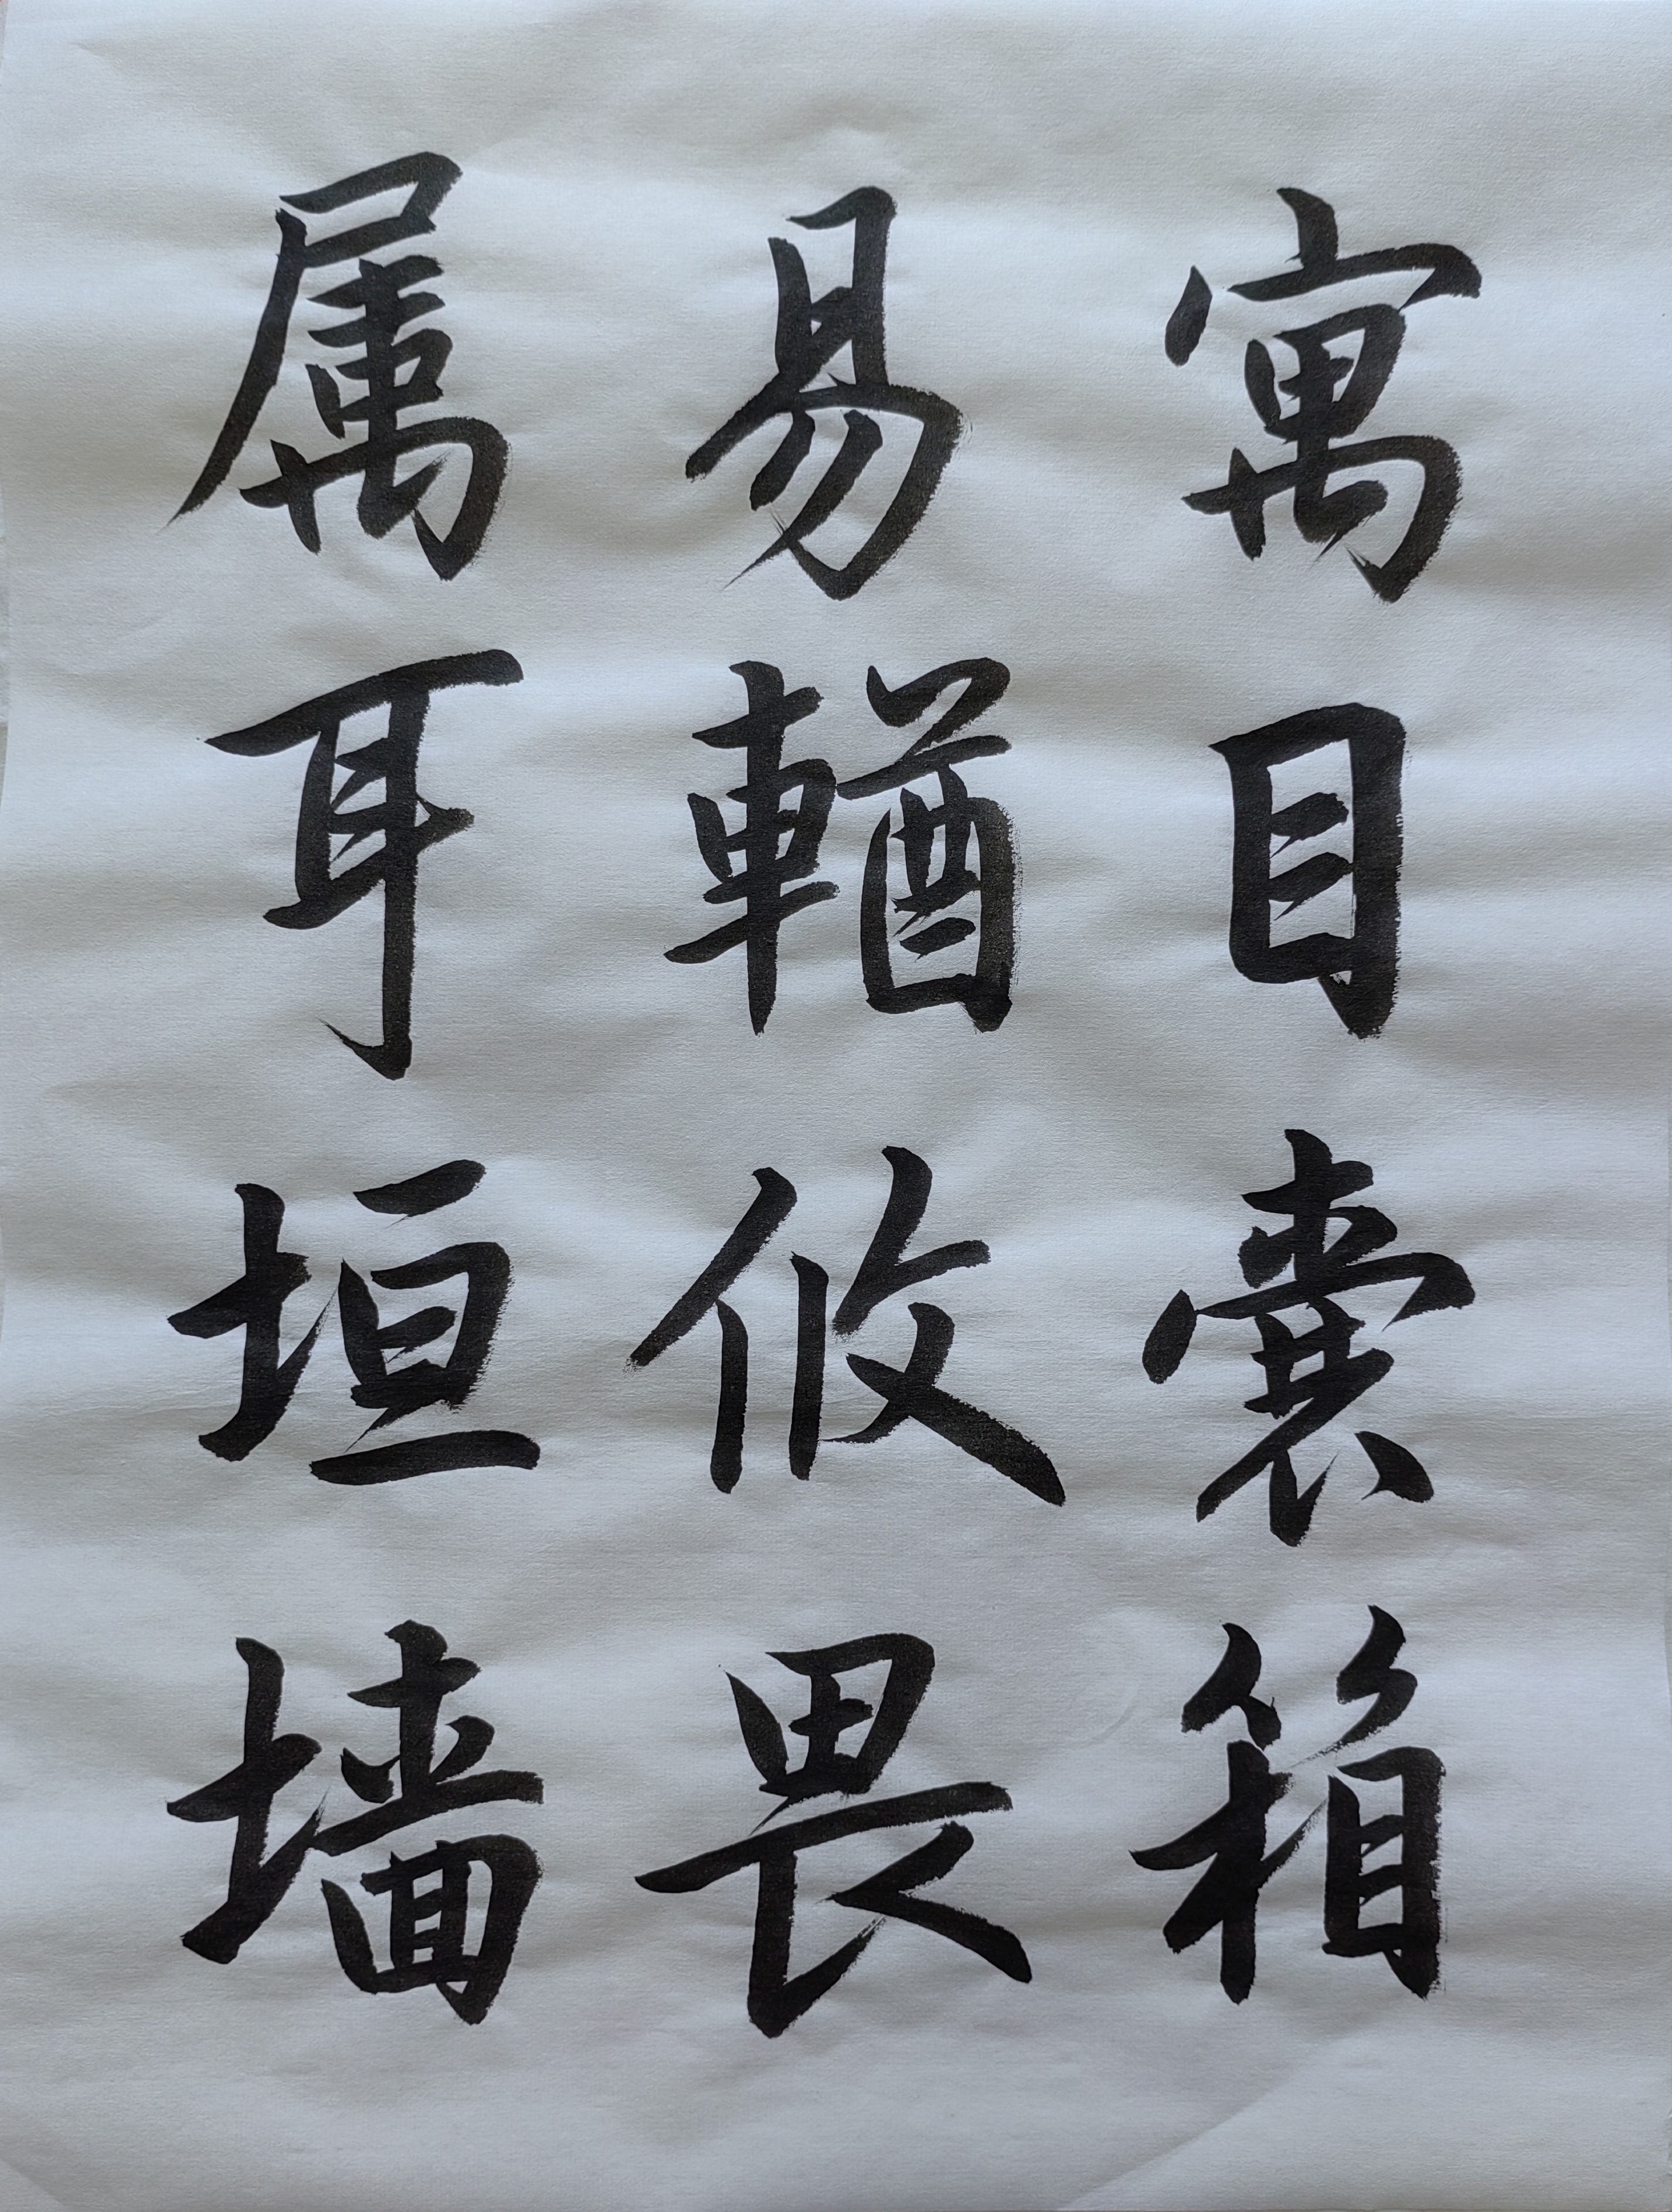 寓目囊箱
易輶攸畏
属耳垣墙